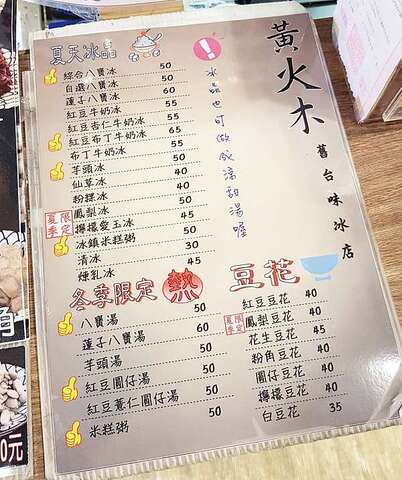 黃火木
舊台味冰店
夏天冰品
冰品也可做成涼甜湯喔
綜合八寶冰 50
自選八寶冰 50
蓮子八寶冰 60
紅豆牛奶冰 55
紅豆杏仁牛奶冰 55
紅豆布丁牛奶冰 65
布丁牛奶冰 55
芋頭冰 50
仙草冰 40
粉粿冰 40
夏季限定 鳳梨冰 50
檸檬愛玉冰 45
冰鎮米糕粥 50
清冰 30
煉乳冰 45
冬季限定 熱
八寶湯 50
蓮子八寶湯 60
芋頭湯 50
紅豆圓仔湯 50
紅豆薏仁圓仔湯 50
米糕粥 50
豆花
紅豆豆花 40
夏季限定 鳳梨豆花 40
花生豆花 45
粉角豆花 40
圓仔豆花 40
檸檬豆花 40
白豆花 35
角
0元